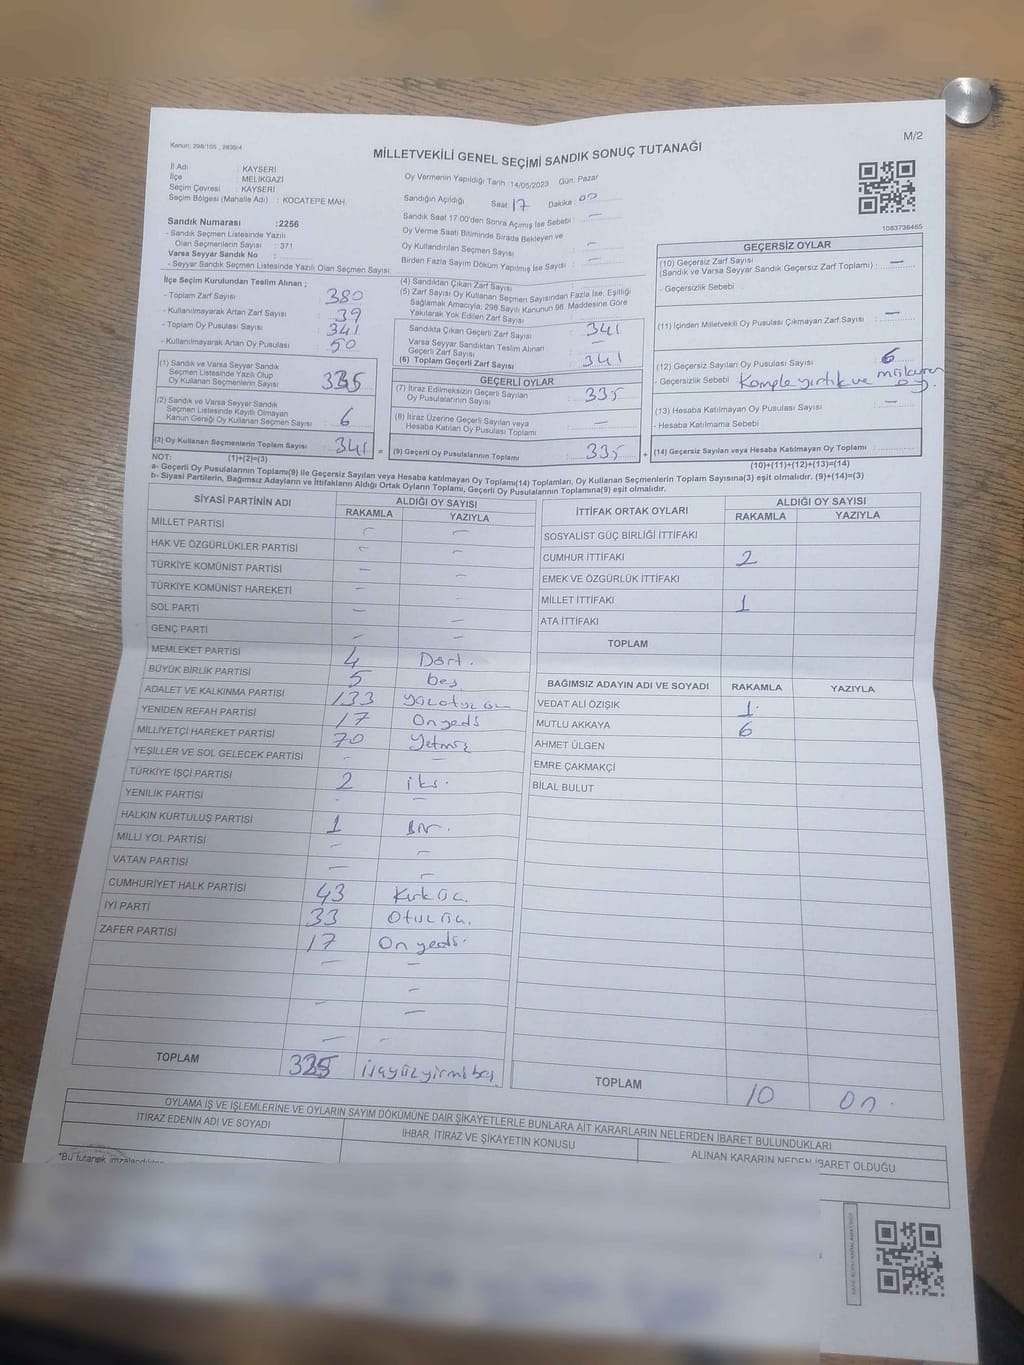 Kanun: 298/105 , 2839/4
M/2
MİLLETVEKİLİ GENEL SEÇİMİ SANDIK SONUÇ TUTANAĞI
İl Adı : KAYSERİ
İlçe : MELİKGAZİ
Seçim Çevresi : KAYSERİ
Seçim Bölgesi (Mahalle Adı) : KOCATEPE MAH.
Sandık Numarası :2256
- Sandık Seçmen Listesinde Yazılı
Olan Seçmenlerin Sayısı : 371
Varsa Seyyar Sandık No :
- Seyyar Sandık Seçmen Listesinde Yazılı Olan Seçmen Sayısı:
Oy Vermenin Yapıldığı Tarih 14/05/2023 Gün: Pazar
Sandığın Açıldığı Saat 17 Dakika: 00
Sandık Saat 17.00'den Sonra Açımış İse Sebebi : –
Oy Verme Saati Bitiminde Sırada Bekleyen ve
Oy Kullandırılan Seçmen Sayısı –
Birden Fazla Sayım Döküm Yapılmış İse Sayısı : –
1083736465
İlçe Seçim Kurulundan Teslim Alınan ;
- Toplam Zarf Sayısı : 380
- Kullanılmayarak Artan Zarf Sayısı : 39
- Toplam Oy Pusulası Sayısı : 341
- Kullanılmayarak Artan Oy Pusulası : 50
(1) Sandık ve Varsa Seyyar Sandık
Seçmen Listesinde Yazılı Olup
Oy Kullanan Seçmenlerin Sayısı : 335
(2) Sandık ve Varsa Seyyar Sandık
Seçmen Listesinde Kayıtlı Olmayan
Kanun Gereği Oy Kullanan Seçmen Sayısı : 6
(3) Oy Kullanan Seçmenlerin Toplam Sayısı : 341
(1)+(2)=(3)
(4) Sandıktan Çıkan Zarf Sayısı
(5) Zarf Sayısı Oy Kullanan Seçmen Sayısından Fazla İse, Eşitliği
Sağlamak Amacıyla; 298 Sayılı Kanunun 98. Maddesine Göre
Yakılarak Yok Edilen Zarf Sayısı :
Sandıkta Çıkan Geçerli Zarf Sayısı : 341
Varsa Seyyar Sandıktan Teslim Alınan
Geçerli Zarf Sayısı –
(6) Toplam Geçerli Zarf Sayısı : 341
GEÇERLİ OYLAR
(7) İtiraz Edilmeksizin Geçerli Sayılan
Oy Pusulalarının Sayısı : 335
(8) İtiraz Üzerine Geçerli Sayılan veya
Hesaba Katılan Oy Pusulası Toplamı : –
= (9) Geçerli Oy Pusulalarının Toplamı : 335 +
GEÇERSİZ OYLAR
(10) Geçersiz Zarf Sayısı
(Sandık ve Varsa Seyyar Sandık Geçersiz Zarf Toplamı) : –
- Geçersizlik Sebebi
(11) İçinden Milletvekili Oy Pusulası Çıkmayan Zarf Sayısı : –
(12) Geçersiz Sayılan Oy Pusulası Sayısı : 6
- Geçersizlik Sebebi Komple yırtık ve oy.
(13) Hesaba Katılmayan Oy Pusulası Sayısı : –
- Hesaba Katılmama Sebebi
(14) Geçersiz Sayılan veya Hesaba Katılmayan Oy Toplamı :
(10)+(11)+(12)+(13)=(14)
NOT:
a- Geçerli Oy Pusulalarının Toplamı(9) İle Geçersiz Sayılan veya Hesaba katılmayan Oy Toplamı(14) Toplamları, Oy Kullanan Seçmenlerin Toplam Sayısına(3) eşit olmalıdır. (9)+(14)=(3)
b- Siyasi Partilerin, Bağımsız Adayların ve İttifakların Aldığı Ortak Oyların Toplamı, Geçerli Oy Pusulalarının Toplamına(9) eşit olmalıdır.
SİYASİ PARTİNİN ADI ALDIĞI OY SAYISI
RAKAMLA YAZIYLA
MİLLET PARTİSİ – –
HAK VE ÖZGÜRLÜKLER PARTİSİ – –
TÜRKİYE KOMÜNİST PARTİSİ – –
TÜRKİYE KOMÜNİST HAREKETİ –
SOL PARTİ – –
GENÇ PARTİ – –
MEMLEKET PARTİSİ 4 Dört.
BÜYÜK BİRLİK PARTİSİ 5 beş
ADALET VE KALKINMA PARTİSİ 133
YENİDEN REFAH PARTİSİ 17 On yedi
MİLLİYETÇİ HAREKET PARTİSİ 70 Yetmiş
YEŞİLLER VE SOL GELECEK PARTİSİ - –
TÜRKİYE İŞÇİ PARTİSİ 2 iki.
YENİLİK PARTİSİ - –
HALKIN KURTULUŞ PARTİSİ 1 Bir.
MİLLİ YOL PARTİSİ – –
VATAN PARTİSİ – –
CUMHURİYET HALK PARTİSİ 43 Kırküç.
İYİ PARTİ 33 Otuzüç.
ZAFER PARTİSİ 17 On yedi.
TOPLAM 325 üçyüzyirmibeş
İTTİFAK ORTAK OYLARI ALDIĞI OY SAYISI
RAKAMLA YAZIYLA
SOSYALİST GÜÇ BİRLİĞİ İTTİFAKI
CUMHUR İTTİFAKI 2
EMEK VE ÖZGÜRLÜK İTTİFAKI
MİLLET İTTİFAKI 1
ATA İTTİFAKI
TOPLAM
BAĞIMSIZ ADAYIN ADI VE SOYADI RAKAMLA YAZIYLA
VEDAT ALİ ÖZIŞIK 1.
MUTLU AKKAYA 6
AHMET ÜLGEN
EMRE ÇAKMAKÇİ
BİLAL BULUT
TOPLAM 10 On.
OYLAMA İŞ VE İŞLEMLERİNE VE OYLARIN SAYIM DÖKÜMÜNE DAİR ŞİKAYETLERLE BUNLARA AİT KARARLARIN NELERDEN İBARET BULUNDUKLARI
İTİRAZ EDENİN ADI VE SOYADI İHBAR, İTİRAZ VE ŞİKAYETİN KONUSU ALINAN KARARIN NEDEN İBARET OLDUĞU
*Bu tutanak imzalandıktan